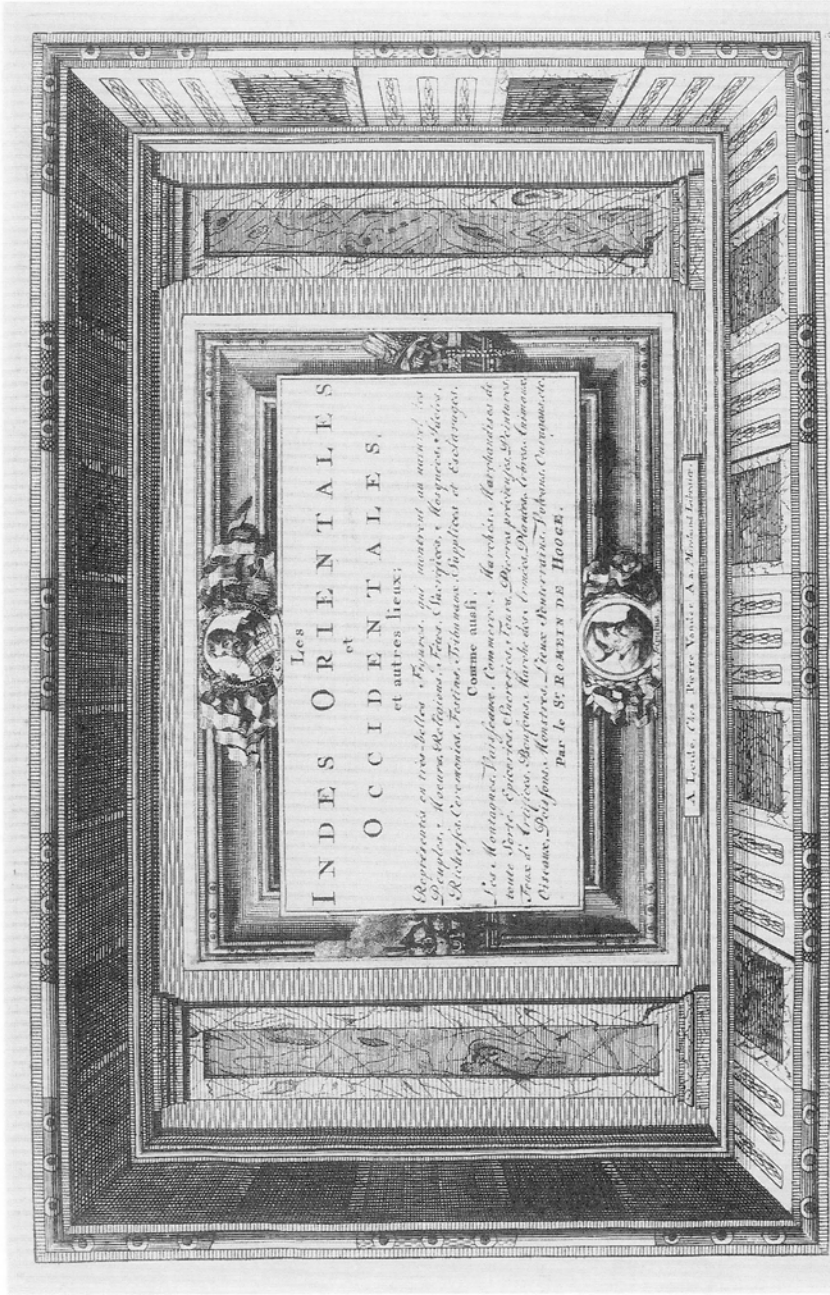 Les
INDES ORIENTALES
et
OCCIDENTALES,
et autres lieux;
Representés en très-belles Figures, qui montrent au naturel les
Peuples, Moeurs, Religions, Fêtes, Sacrifices, Mosquées, Idoles,
Richesses, Ceremonies, Festins, Tribunaux, Supplices et Esclavages,
Comme aussi,
Les Montagnes, Vaisseaux, Commerce, Marchés, Marchandises de
toute Sorte, Epiceries, Sucreries, Tours, Pierres précieuses, Peintures,
Feux d'Artifices, Boufons, Marche des Armées, Plantes, Arbres, Animaux,
Oiseaux, Poissons, Monstres, Lieux Souterrains, Volcans, Ouragans, etc.
Par le Sr. ROMEIN DE HOOGE.
A Leide, Chez Pierre Vander Aa, Marchand Libraire.